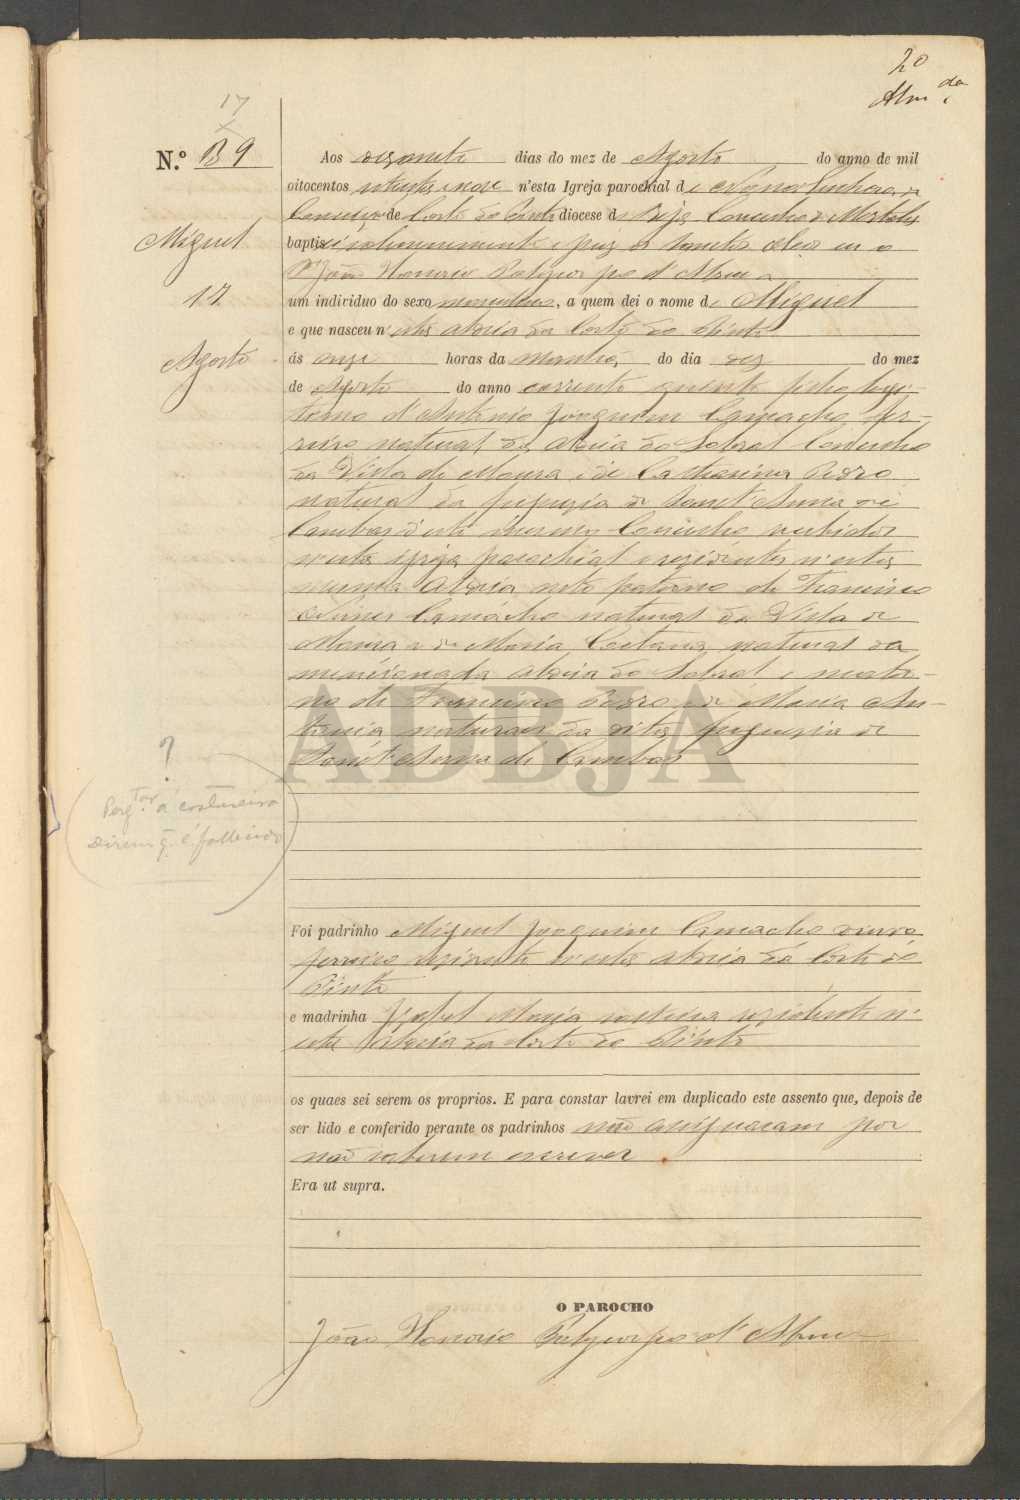 20
Alm.da
17
N.º B 9
Aos desasete dias do mez de Agosto do anno de mil
oitocentos e nove n'esta Igreja parochial de Nossa Senhora da
Conceição de Corte do Pinto diocese de Beja Concelho de Mertola
baptisei solemnemente e puz os Santos oleos eu o
P.e João Honorio Polycarpo d'Abreu
Miguel
17
Agosto
um individuo do sexo masculino, a quem dei o nome de Miguel
e que nasceu n'esta aldeia da Corte do Pinto
ás onze horas da manhã do dia dez do mez
de Agosto do anno corrente filho legi-
timo d'Antonio Joaquim Camacho fer-
reiro natural da aldeia do Sobral Concelho
da Villa de Moura e de Catharina Pedro
natural da freguezia de Sant Anna de
Cambas d'este mesmo Concelho recebidos
n'esta igreja parochial e rezidentes n'esta
mesma aldeia neto paterno de Francisco
Camacho natural da Villa de
Moura e de Maria Caetana natural da
mencionada aldeia do Sobral e mater-
no de Francisco Pedro e de Maria An-
tonia naturaes da dita freguezia de
Sant Anna de Cambas
?
Perg.tar á costureira
dizem q. é fallecido
ADBJA
Foi padrinho Miguel Joaquim Camacho viuvo
ferreiro rezidente n'esta aldeia da Corte do
Pinto
e madrinha Izabel Maria solteira rezidente n'
esta aldeia da Corte do Pinto
os quaes sei serem os proprios. E para constar lavrei em duplicado este assento que, depois de
ser lido e conferido perante os padrinhos não assignaram por
não saberem escrever
Era ut supra.
O PAROCHO
João Honorio Polycarpo d'Abreu